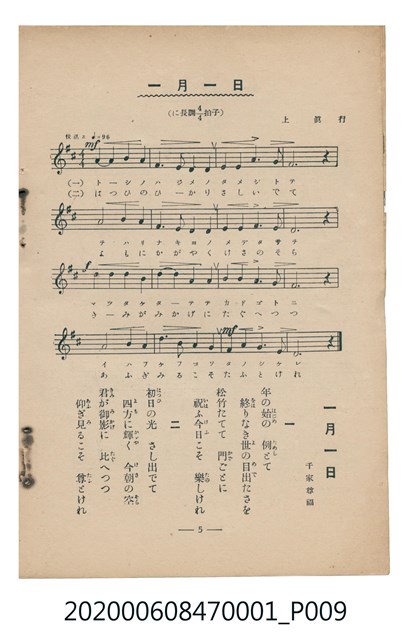 一月一日
(に長調4/4拍子)
上眞行
mf
(一) トーシノハ ジメノタメシトテ
(二) はつひのひ かりさしいでて
ヲハリナキヨノメデタサヲ
よもにかがやくけさのそら
f
マツタケターテテカドゴトニ
きーみがみかげにたぐへつつ
mf
イハフケフコソタノシケレ
あふぎみるこそたふとけれ
一月一日
千家尊福
一
年の始の 例とて
終りなき世の目出たさを
松竹たてて 門ごとに
祝ふ今日こそ 樂しけれ
二
初日の光 さし出でて
四方に輝く 今朝の空
君が御影に 比へつつ
仰ぎ見るこそ 尊とけれ
— 5 —
202000608470001_P009